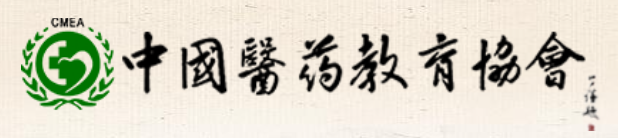 CMEA
中國醫药教育協會